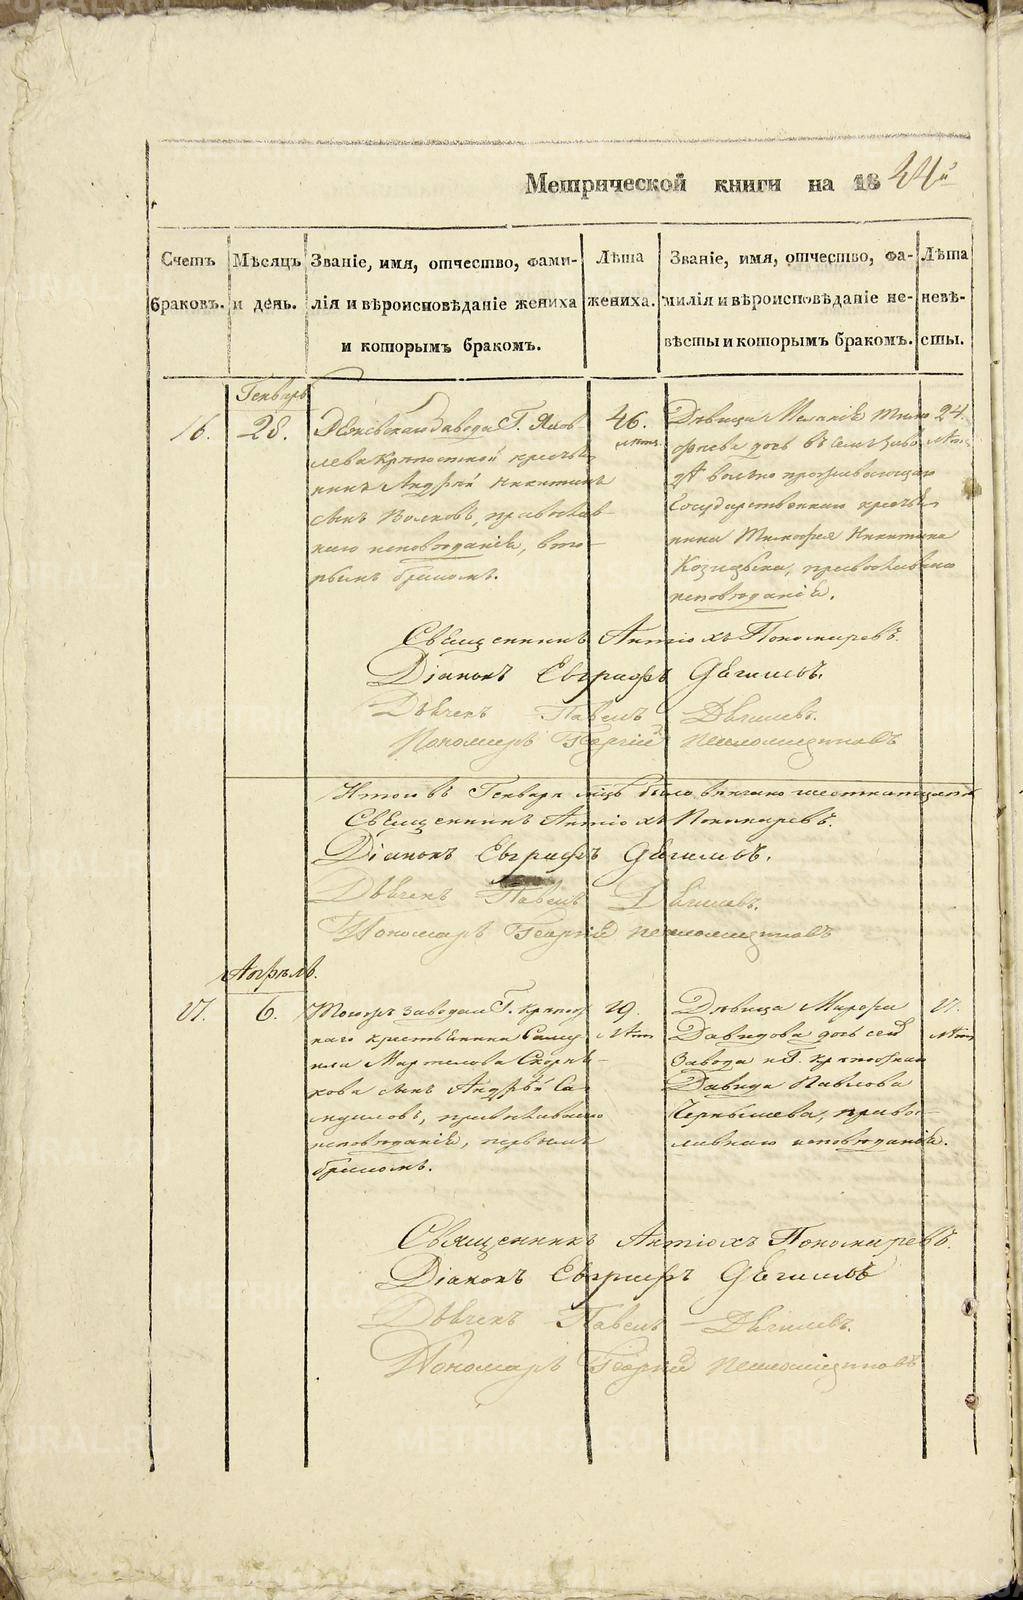 Метрической книги на 1844й
Счетъ браковъ.
Мѣсяцъ и день.
Званіе, имя, отчество, фамилія и вѣроисповѣданіе жениха и которымъ бракомъ.
Лѣта жениха.
Званіе, имя, отчество, фамилія и вѣроисповѣданіе невѣсты и которымъ бракомъ.
Лѣта невѣсты.
Генварь
16.
28.
Завода Г. Яков
лева крѣпостной крестья
нинъ Андрей Никитинъ
сынъ Волковъ, православ
наго исповѣданія, вто
рымъ бракомъ.
46.
лѣтъ
Дѣвица Меланія Тимо
фѣева дочь в семъ заво
дѣ вольно проживающаго
Государственнаго крестья
нина Тимофея Никитина
православнаго
исповѣданія.
24.
лѣтъ
Священникъ Антіохъ Пономаревъ.
Діаконъ Евграфъ Дягилевъ.
Дьячекъ Павелъ Дягилевъ.
Пономарь Георгій
Итого въ Генварѣ м҃цѣ было вѣнчано шестнатцать
Священникъ Антіохъ Пономаревъ.
Діаконъ Евграфъ Дягилевъ.
Дьячекъ Павелъ Дягилевъ.
Пономарь Георгій
Апрѣль.
17.
6.
Тогожъ завода Г. крѣпост
наго крестьянина Саму
ила Скорня
кова сынъ Андрей Са
муиловъ, православнаго
исповѣданія, первымъ
бракомъ.
19.
лѣтъ
Дѣвица Марфа
Давидова дочь сего
завода и Г. крѣпостнаго
Давида Павлова
Чернышева, право
славнаго исповѣданія.
17.
лѣтъ
Священникъ Антіохъ Пономаревъ.
Діаконъ Евграфъ Дягилевъ
Дьячекъ Павелъ Дягилевъ.
Пономарь Георгій
METRIKI.GASO-URAL.RU